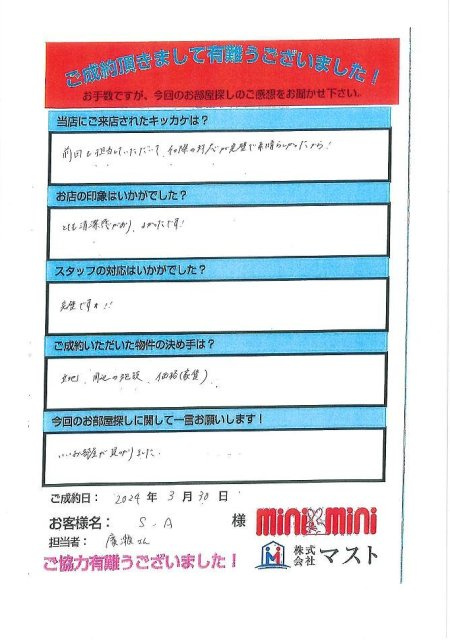 ご成約頂きまして有難うございました！
お手数ですが、今回のお部屋探しのご感想をお聞かせ下さい。
当店にご来店されたキッカケは？
前回も担当していただいて、その際の対応が完璧で素晴らしかったから！
お店の印象はいかがでした？
とても清潔感があり、よかったです！
スタッフの対応はいかがでした？
完璧です!!
ご成約いただいた物件の決め手は？
立地、周辺の施設、価格(家賃)
今回のお部屋探しに関して一言お願いします！
いいお部屋が見つかりました。
ご成約日： 2024 年 3 月 30 日
お客様名： S.A 様
担当者： 廣瀬さん
ご協力有難うございました！
mini mini
株式会社 マスト